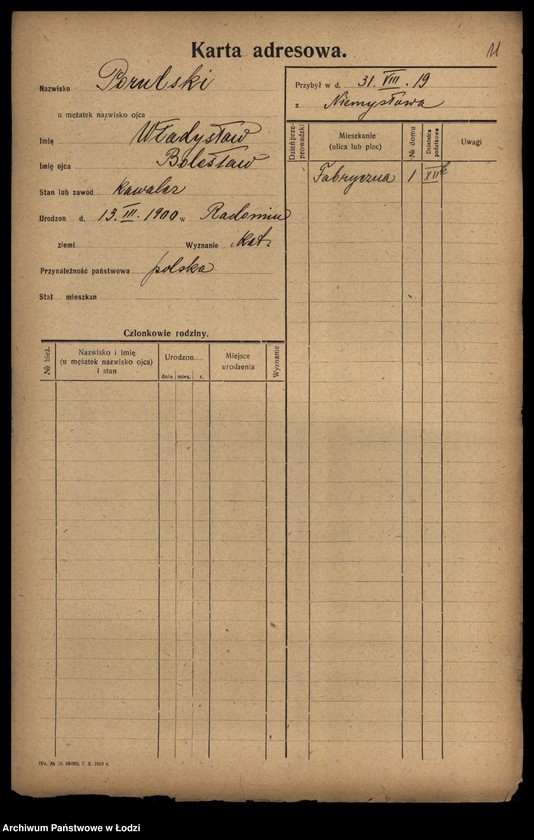 Karta adresowa.
11
Nazwisko Porulski
u mężatek nazwisko ojca
Imię Władysław
Imię ojca Bolesław
Stan lub zawód kawaler
Urodzon d. 13. III. 1900 w Radomiu
ziemi Wyznanie kat.
Przynależność państwowa polska
Stał mieszkan
Przybył w d. 31. VIII. 19
z Niemysłowa
Dzień przeprowadzki
Mieszkanie (ulica lub plac)
№ domu
Dzielnica podatkowa
Uwagi
Fabryczna 1 XII
Członkowie rodziny.
№ bież.
Nazwisko i imię
(u mężatek nazwisko ojca)
i stan
Urodzon
dnia mies. r.
Miejsce
urodzenia
Wyznanie
Archiwum Państwowe w Łodzi